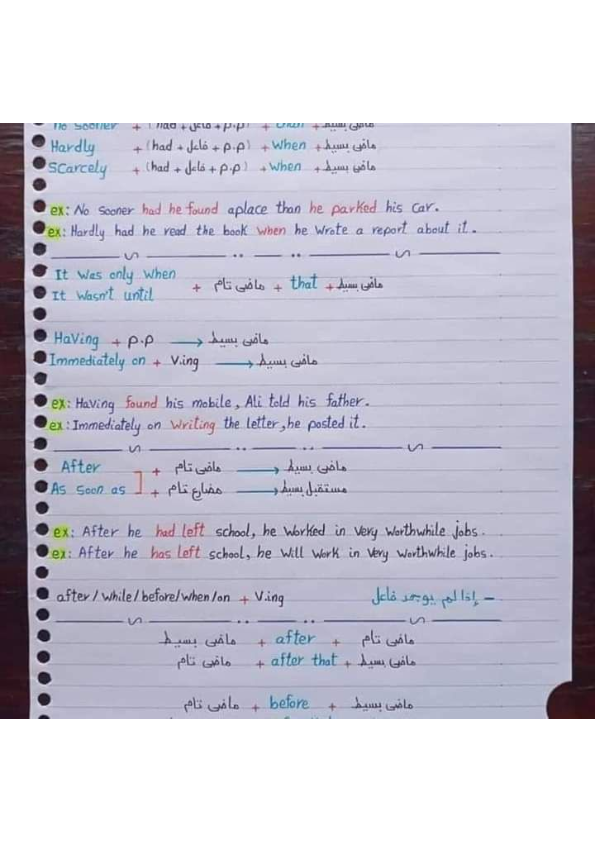 No Sooner + (had + فاعل + p.p) + than + ماضى بسيط
Hardly + (had + فاعل + p.p) + When + ماضى بسيط
Scarcely + (had + فاعل + p.p) + When + ماضى بسيط
ex: No Sooner had he found aplace than he parked his car.
ex: Hardly had he read the book when he wrote a report about it.
It was only when
It wasn't until + ماضى تام + that + ماضى بسيط
Having + p.p → ماضى بسيط
Immediately on + V.ing → ماضى بسيط
ex: Having found his mobile, Ali told his father.
ex: Immediately on writing the letter, he posted it.
After + ماضى تام → ماضى بسيط
As Soon as + مضارع تام → مستقبل بسيط
ex: After he had left school, he worked in very worthwhile jobs.
ex: After he has left school, he will work in very worthwhile jobs.
after/while/before/when/on + V.ing – إذا لم يوجد فاعل
ماضى بسيط + after + ماضى تام
ماضى تام + after that + ماضى بسيط
ماضى تام + before + ماضى بسيط